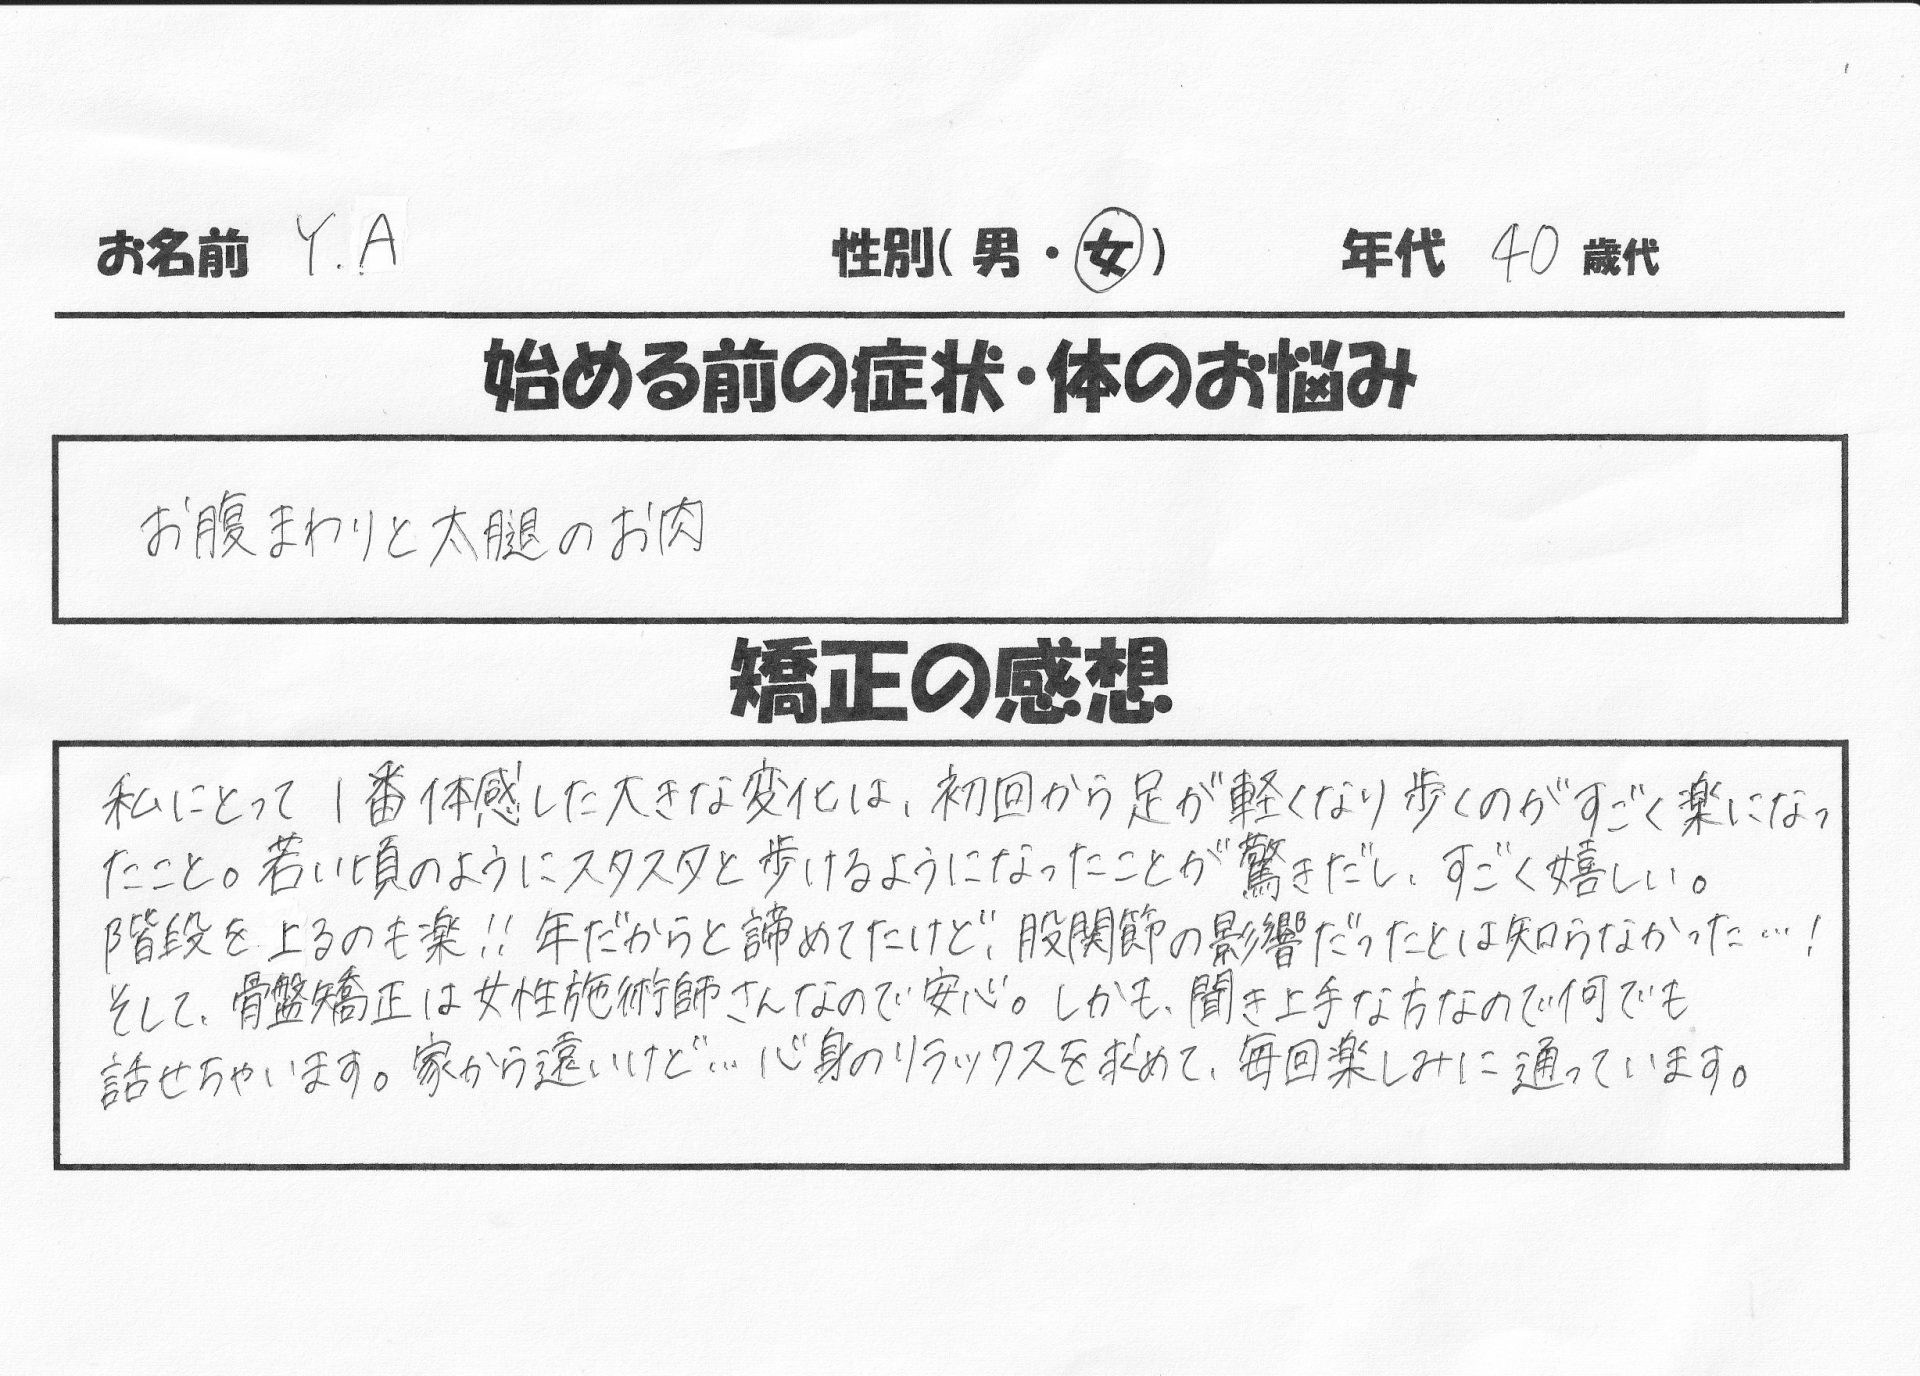 お名前 Y.A 性別( 男 ・ 女 ) 年代 40 歳代
始める前の症状・体のお悩み
お腹まわりと太腿のお肉
矯正の感想
私にとって1番体感した大きな変化は、初回から足が軽くなり歩くのがすごく楽になっ
たこと。若い頃のようにスタスタと歩けるようになったことが驚きだし、すごく嬉しい。
階段を上るのも楽!! 年だからと諦めてたけど、股関節の影響だったとは知らなかった…!
そして、骨盤矯正は女性施術師さんなので安心。しかも、聞き上手な方なので何でも
話せちゃいます。家から遠いけど…心身のリラックスを求めて、毎回楽しみに通っています。